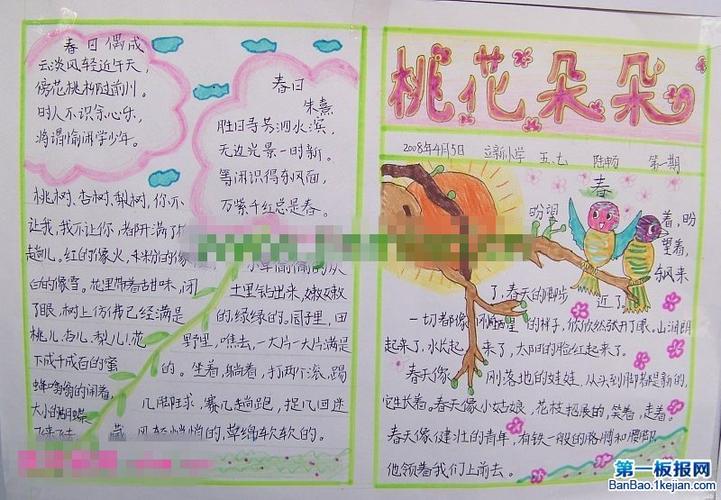 春日偶成
云淡风轻近午天,
傍花随柳过前川。
时人不识余心乐,
将谓偷闲学少年。
春日
朱熹
胜日寻芳泗水滨,
无边光景一时新。
等闲识得东风面,
万紫千红总是春。
桃树、杏树、梨树,你不
让我,我不让你,都开满了
赶趟儿。红的像火,粉的像
白的像雪。花里带着甜味,闭
了眼,树上仿佛已经满是
桃儿、杏儿、梨儿!花
下成千成百的蜜
蜂嗡嗡的闹着,
大小的蝴蝶
飞来飞去
土里钻出来,嫩嫩
的绿绿的。园子里,田
野里,瞧去,一大片一大片满是
的。坐着,躺着,打两个滚,踢
几脚球,赛几趟跑,捉几回迷
藏 风轻悄悄的,草绵软软的。
桃花朵朵
2008年4月5日 立新小学 五.七 陆畅 第一期
春
盼望 着,盼
望着,
东风来
了,春天的脚步 近了。
一切都像 的样子,欣欣然张开了眼。山润朗
起来了,水长起 来了,太阳的脸红起来了。
春天像 刚落地的娃娃,从头到脚都是新的,
它生长着。春天像小姑娘,花枝招展的,笑着,走着。
春天像健壮的青年,有铁一般的胳膊和腰脚
他领着我们上前去。
第一板报网
BanBao.1kejian.com